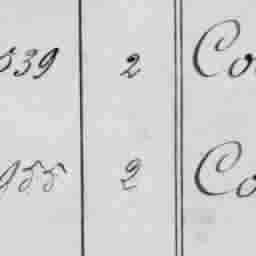 539 2 Co
955 2 Co